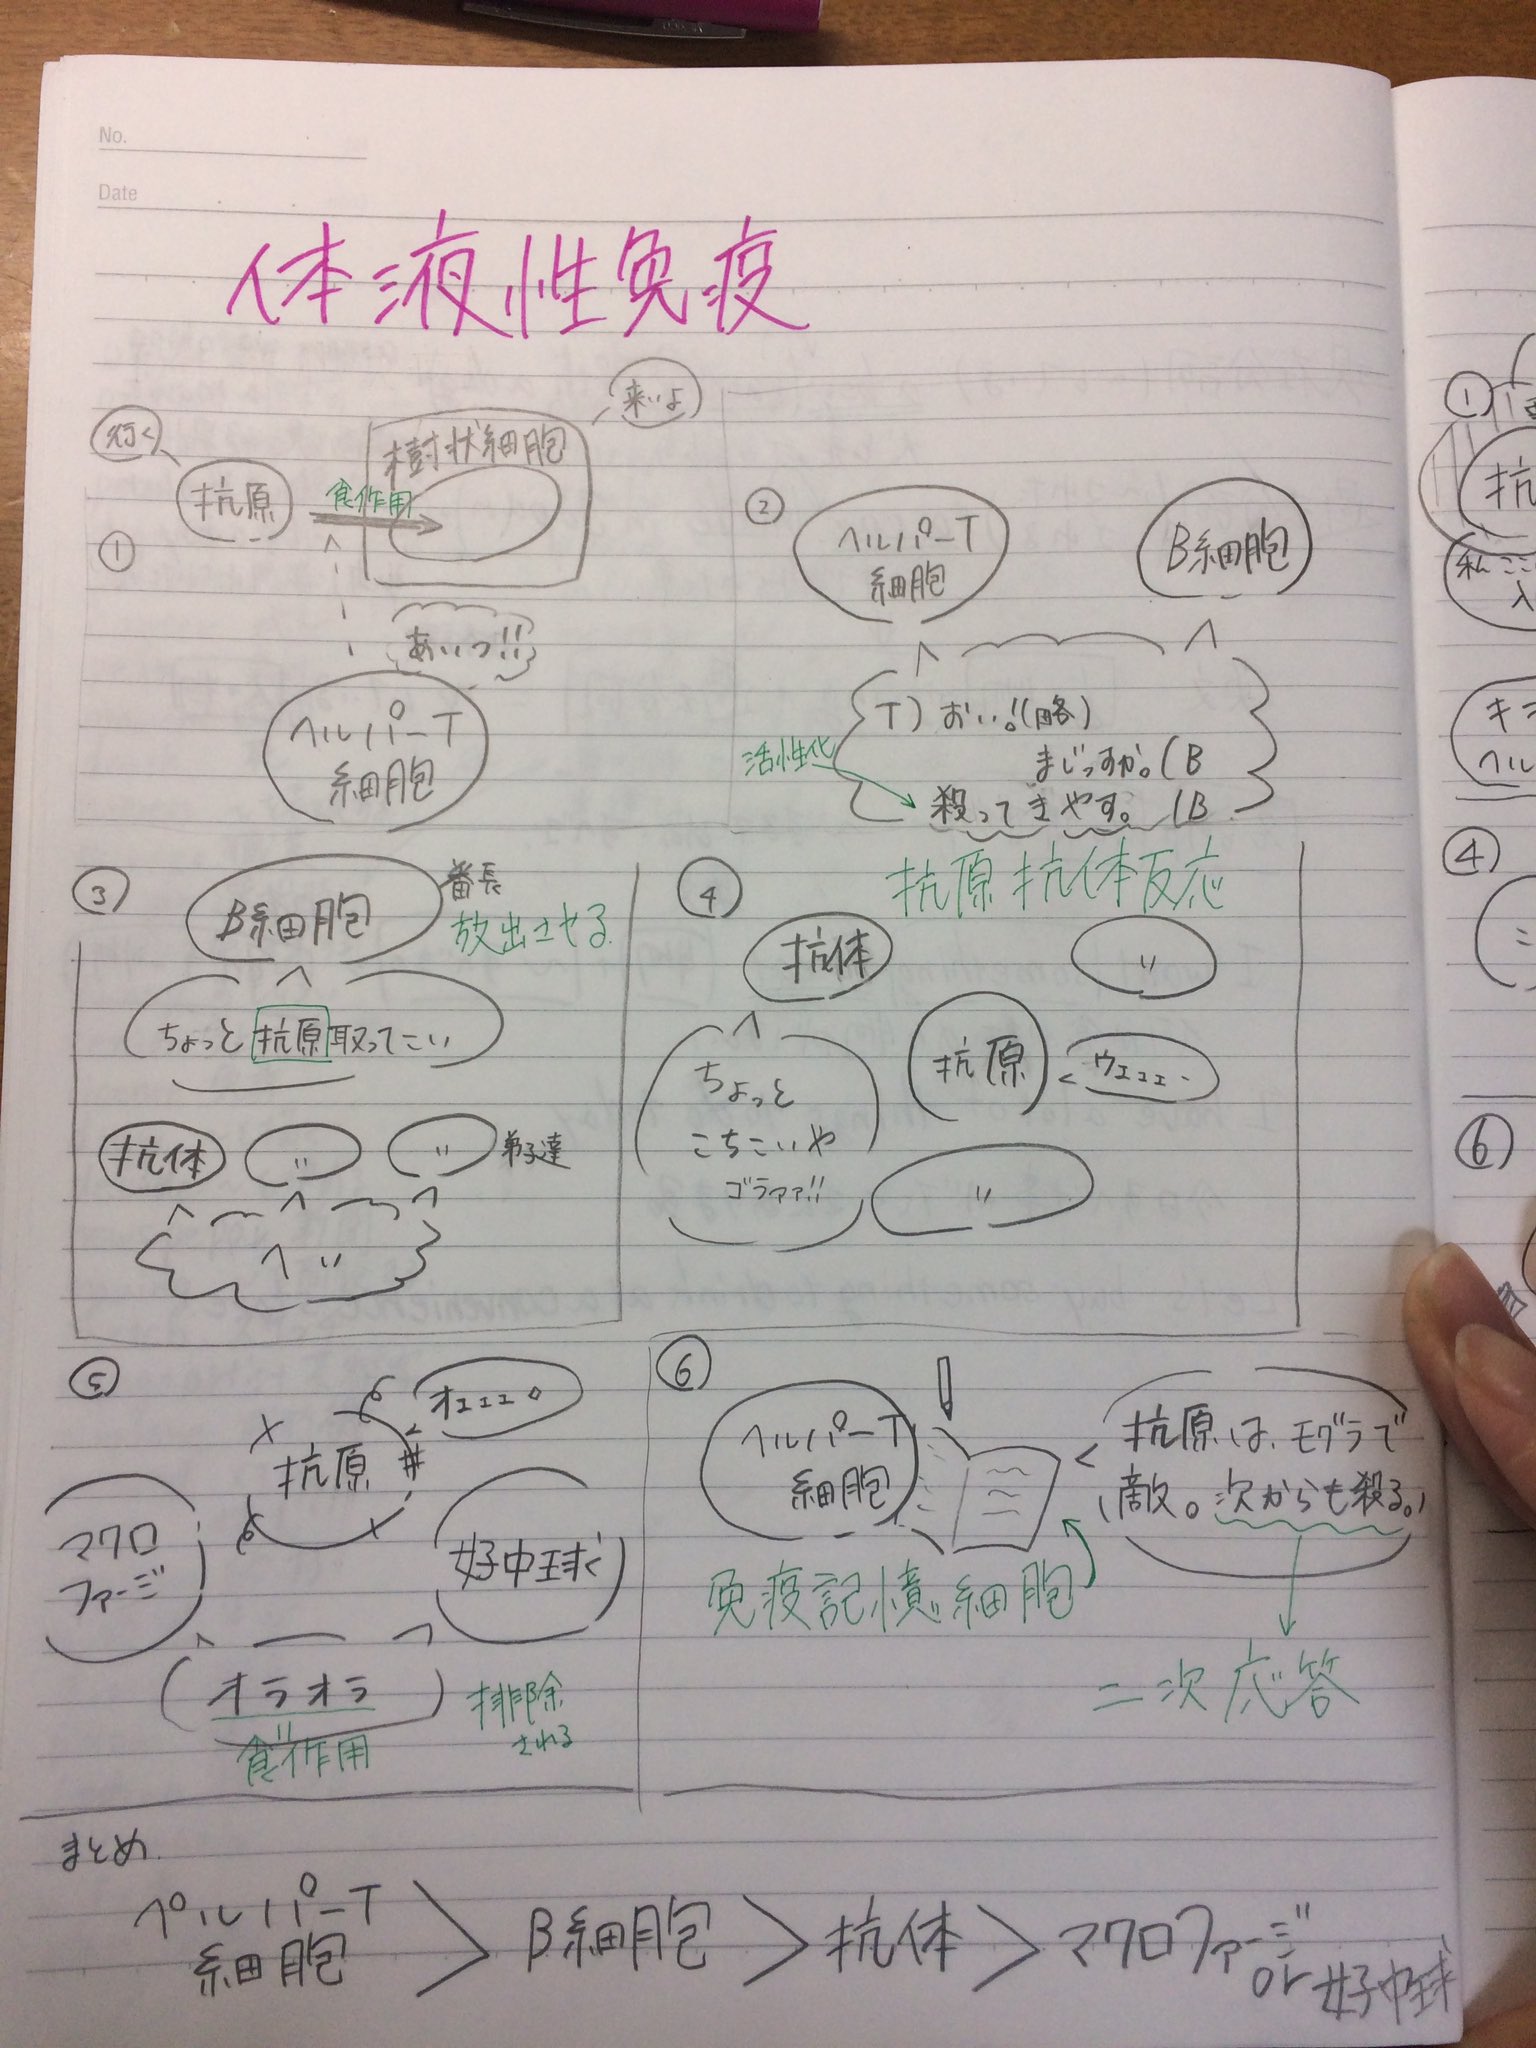 No.
Date
体液性免疫
①
行く
抗原
食作用
樹状細胞
来いよ
あいつ!!
ヘルパーT
細胞
②
ヘルパーT
細胞
B細胞
T) おい!!(略)
まじっすか。(B
活性化
殺ってきやす。(B
③
B細胞
番長
放出させる
ちょっと抗原取ってこい
抗体
〃
〃
弟子達
へい
④
抗原抗体反応
抗体
〃
抗原
ウエェェ..
ちょっと
こちこいや
ゴラァァ!!
〃
⑤
オェェェ。
抗原
マクロ
ファージ
好中球
オラオラ
食作用
排除
される
⑥
ヘルパーT
細胞
抗原は、モグラで
敵。次からも殺る。
免疫記憶細胞
二次応答
まとめ
ペルパーT
細胞
> B細胞 > 抗体 > マクロファージ
or 好中球
①
抗
私ここ
入
キラ
ヘル
④
⑥